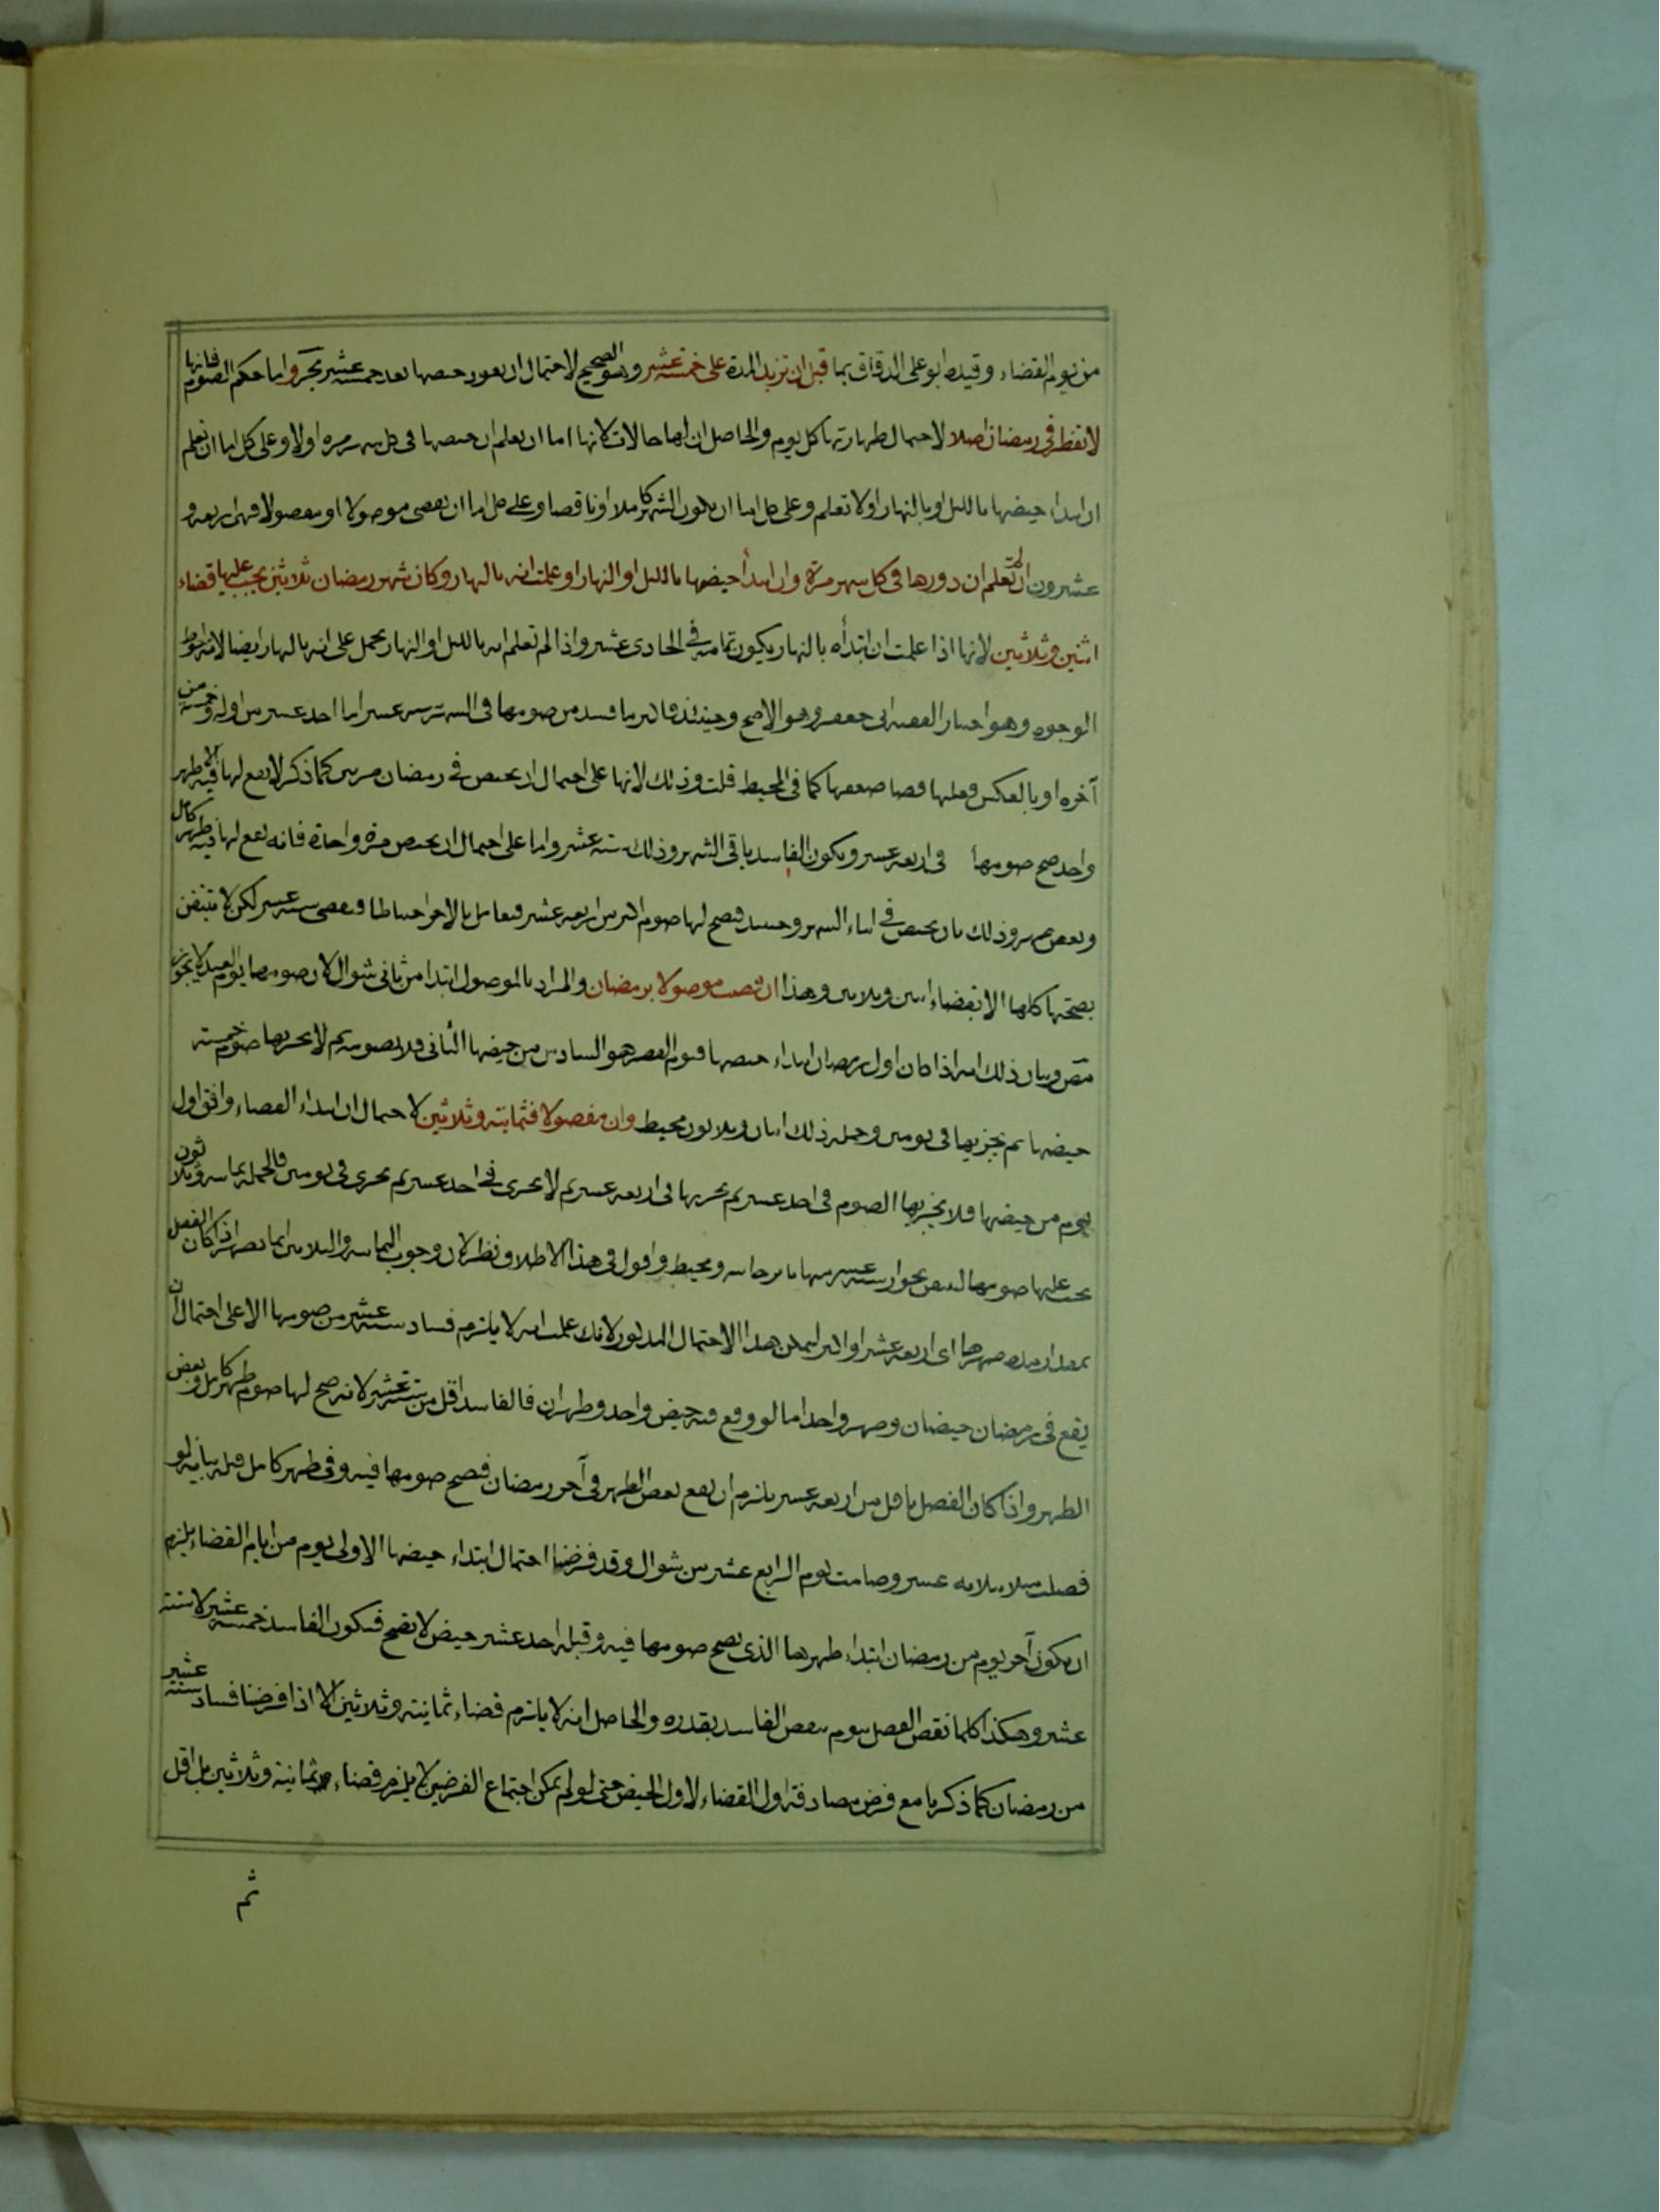 من يوم القضاء وقيده ابو على الدقاق بما قبل ان تزيد المدة على خمسة عشر وهو الصحيح لاحتمال ان يعود حيضها بعد خمسة عشر بحر واما حكم الصوم فانها
لا تفطر فى رمضان اصلا لاحتمال طهارتها كل يوم والحاصل ان لها حالات لانها اما ان يعلم ان حيضها فى كل شهر مرة او لا وعلى كل اما ان تعلم
ان ابتداء حيضها بالليل او بالنهار او لا تعلم وعلى كل اما ان يكون الشهر كاملا او ناقصا وعلى كل اما ان يقضى موصولا او مفصولا فهى اربعة و
عشرون ان لم تعلم ان دورها فى كل شهر مرة وان ابتدأ حيضها بالليل او النهار او علمت انه بالنهار وكان شهر رمضان ثلاثين يجب عليها قضاء
اثنين وثلاثين لانها اذا علمت ان ابتدأه بالنهار يكون تمامه فى الحادى عشر واذا لم تعلم انه بالليل او النهار يحمل على انه بالنهار ايضا لانه احوط
الوجوه وهو اختيار الفقيه ابى جعفر وهو الاصح وحينئذ فاكثر ما فسد من صومها فى الشهر ستة عشر اما احد عشر من اوله وخمسة من
آخره او بالعكس فعليها قضا ضعفها كما فى المحيط قلت وذلك لانها على احتمال ان يحيض فى رمضان مرتين كما ذكر لا يقع لها فيه الا طهر
واحد صح صومها فى اربعة عشر ويكون الفاسد باقى الشهر وذلك ستة عشر واما على احتمال ان يحيض مرة واحدة فانه يقع لها فيه طهر كامل
وبعض طهر وذلك بان يحيض فى اثناء الشهر وحينئذ فصح لها صوم اكثر من اربعة عشر فتعامل بالاضر احتياطا فيقضى ستة عشر لكن لا تتيقن
بصحتها كلها الا بقضاء اثنين وثلاثين وهذا ان قضت موصولا برمضان والمراد بالموصول ابتدا من ثانى شوال لان صومها يوم العيد لا يجوز
مص وبيان ذلك انه اذا كان اول رمضان ابتداء حيضها فيوم الفطر هو السادس من حيضها الثانى فلا تصومه ثم لا يجزيها صوم خمسة
حيضها ثم يجزيها فى يومين وجملة ذلك اثنان وثلاثون محيط وان مفصولا فثمانية وثلاثين لاحتمال ان ابتداء القضاء وافق اول
يوم من حيضها فلا يجزيها الصوم فى احد عشر ثم يجزيها فى اربعة عشر ثم لا يجزى فى احد عشر ثم يجزى فى يومين فالجملة ثمانية وثلاثون
يجب عليها صومها لتيقن بجواز ستة عشر منها تاترخانيه ومحيط واقول فى هذا الاطلاق نظر لان وجوب الثمانية والثلاثين انما يصر اذا كان الفصل
بمقدار مدة طهرها اى اربعة عشر او اكثر ليمكن هذا الاحتمال المذكور لانك علمت انه لا يلزم فساد ستة عشر من صومها الا على احتمال ان
يقع فى رمضان حيضان وطهر واحد اما لو وقع فيه حيض واحد وطهران فالفاسد اقل من ستة عشر لانه صح لها صوم طهر كامل وبعض
الطهر واذا كان الفصل باقل من اربعة عشر يلزم ان يقع بعض الطهر فى آخر رمضان فيصح صومها فيه وفى طهر كامل قبله بيانه لو
فصلت مثلا بثلاثة عشر وصامت يوم الرابع عشر من شوال وقد فرضنا احتمال ابتداء حيضها الاولى يوم من ايام القضاء يلزم
ان يكون آخر يوم من رمضان ابتداء طهرها الذى يصح صومها فيه وقبله احد عشر حيض لا تصح فيكون الفاسد خمسة عشر لا ستة
عشر وهكذا كلما نقص الفصل بيوم ينقص الفاسد بقدره والحاصل انه لا يلزم قضاء ثمانية وثلاثين الا اذا فرضنا فساد ستة عشر
من رمضان كما ذكرنا مع فرض مصادفة اول القضاء لاول الحيض حتى لو لم يمكن اجتماع الفرضين لا يلزم قضاء ثمانية وثلاثين بل اقل
ثم